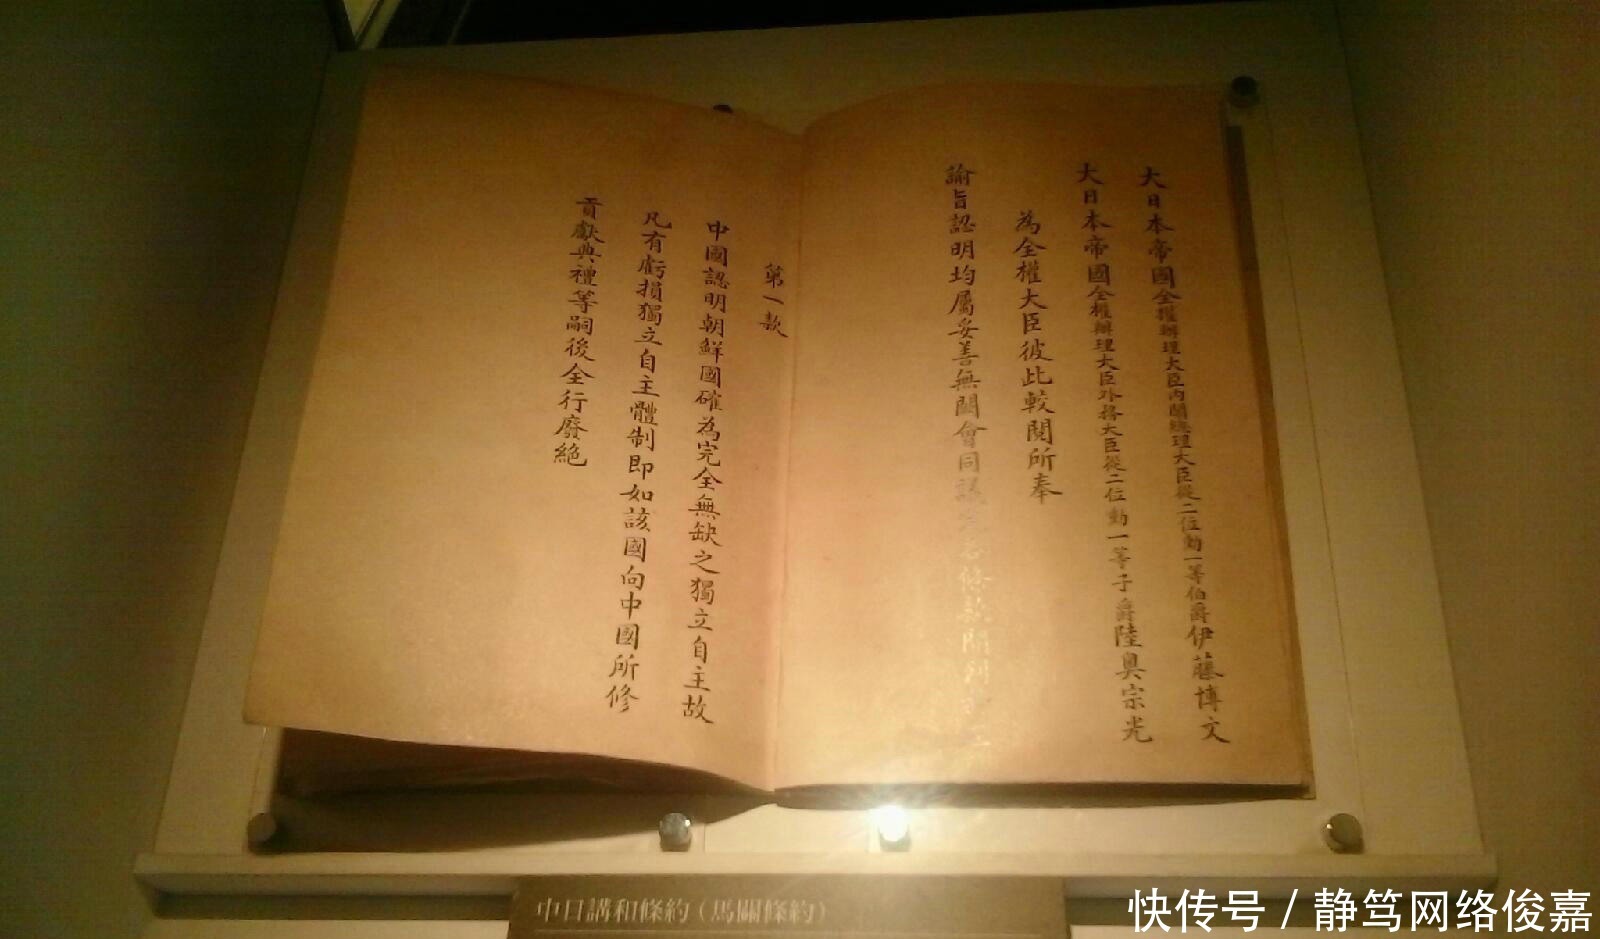 大日本帝國全權辦理大臣內閣總理大臣從二位勳一等伯爵伊藤博文
大日本帝國全權辦理大臣外務大臣從二位勳一等子爵陸奧宗光
為全權大臣彼此較閱所奉
諭旨認明均屬妥善無闕會同議定各條款開列
第一款
中國認明朝鮮國確為完全無缺之獨立自主故
凡有虧損獨立自主體制即如該國向中國所修
貢獻典禮等嗣後全行廢絕
中日講和條約（馬關條約）
快传号 / 静笃网络俊嘉